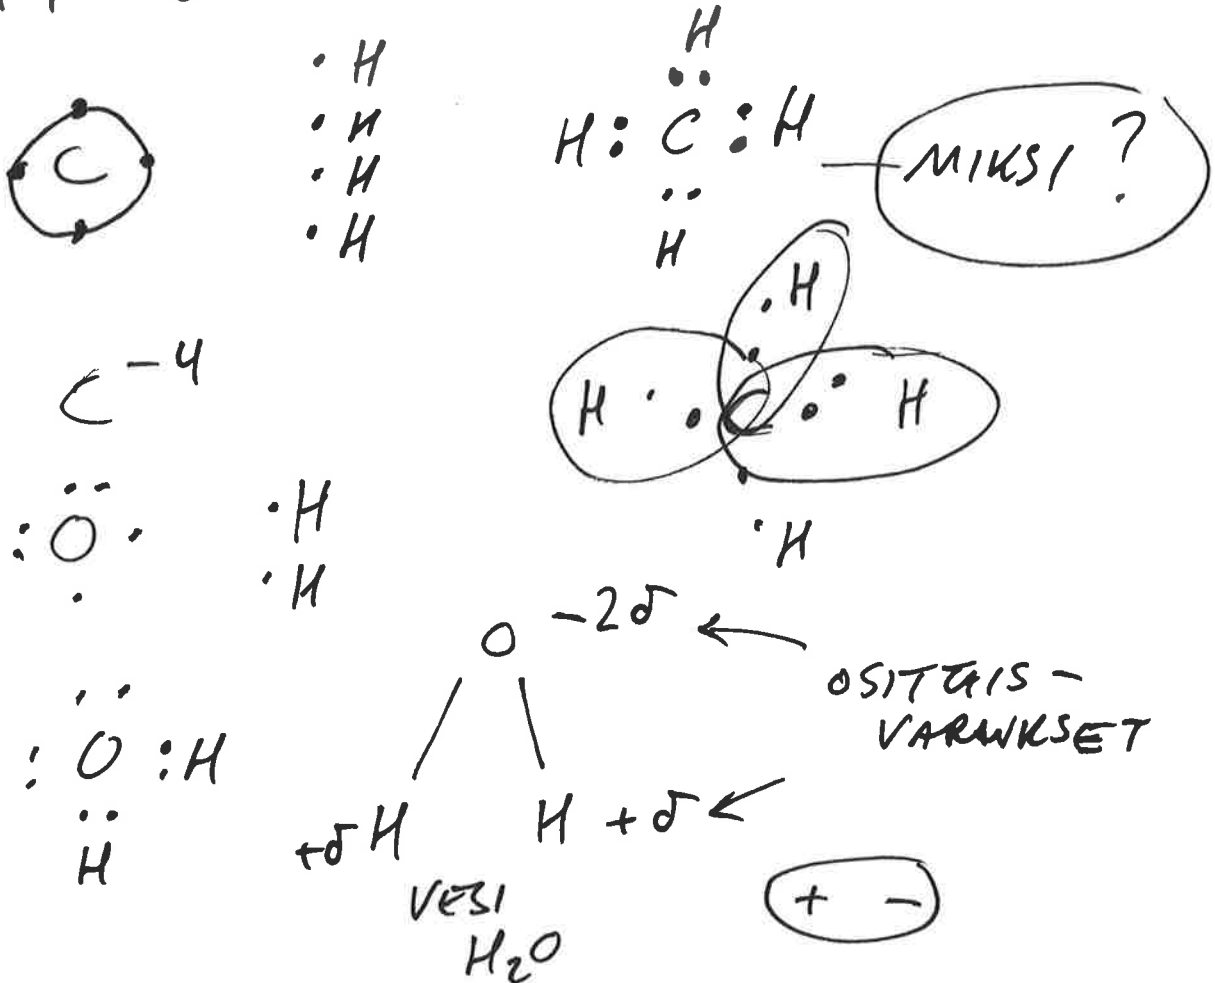 · H
· H
· H
· H
C
H
H : C : H
H
MIKSI ?
C -4
H
H · · C · · H
· H
: O ·
· H
· H
O -2δ
OSITTAIS-
VARAUKSET
: O : H
H
+δ H H + δ
VESI
H₂O
+ -